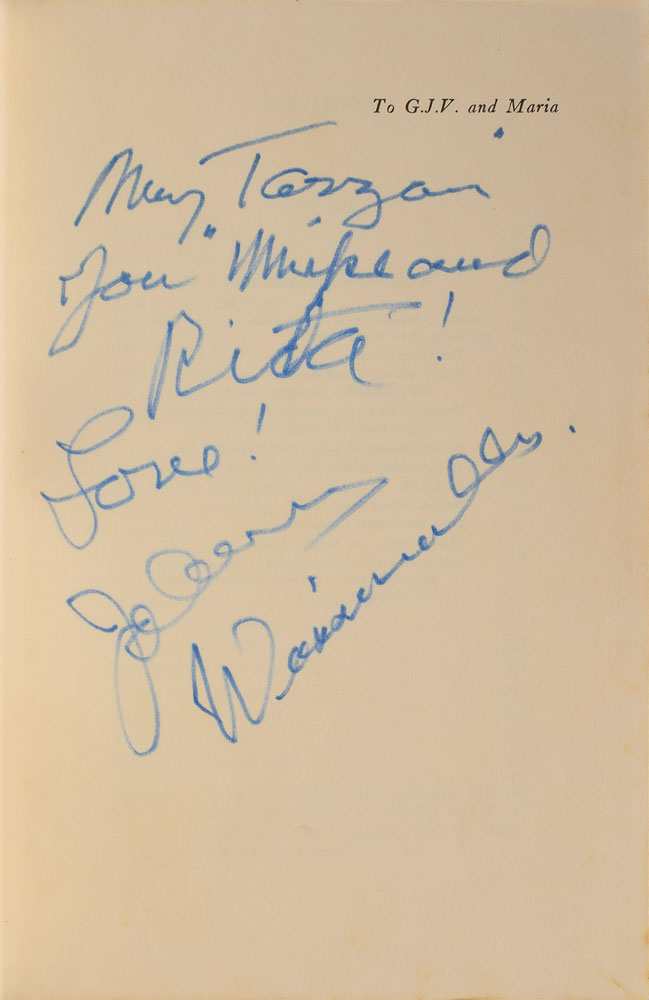 To G.J.V. and Maria
Tarzan
You "Mike and
Rita"!
Love!
Johnny
Weissmuller.